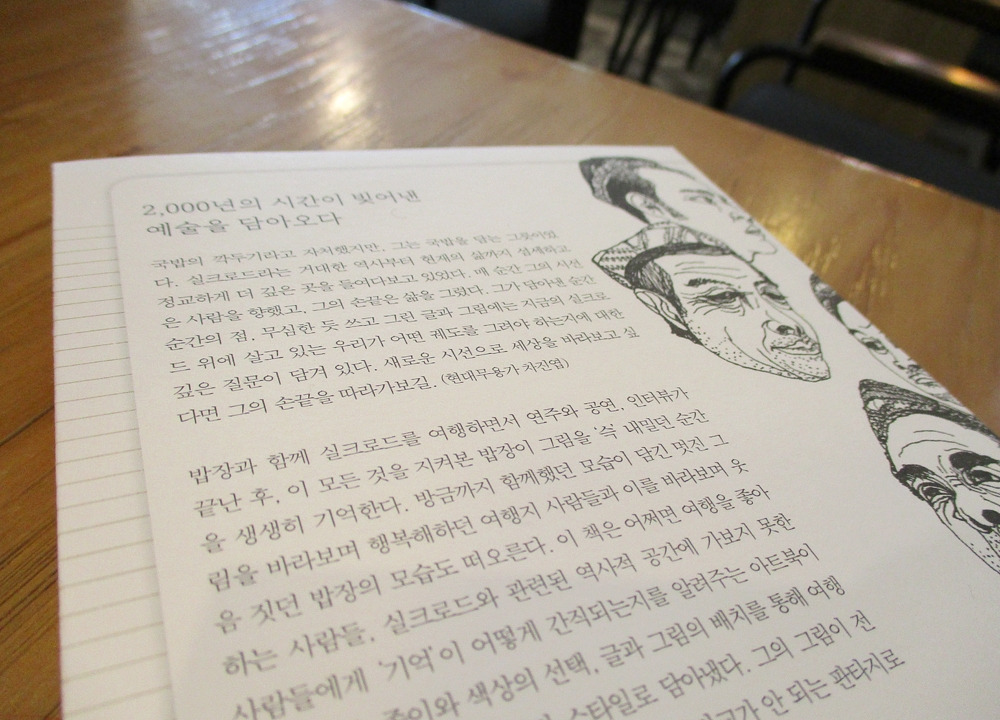 2,000년의 시간이 빚어낸
예술을 담아오다
국밥의 깍두기라고 자처했지만, 그는 국밥을 담는 그릇이었
다. 실크로드라는 거대한 역사부터 현재의 삶까지 섬세하고
정교하게 더 깊은 곳을 들여다보고 있었다. 매 순간 그의 시선
은 사람을 향했고, 그의 손끝은 삶을 그렸다. 그가 담아낸 순간
순간의 점. 무심한 듯 쓰고 그린 글과 그림에는 지금의 실크로
드 위에 살고 있는 우리가 어떤 궤도를 그려야 하는지에 대한
깊은 질문이 담겨 있다. 새로운 시선으로 세상을 바라보고 싶
다면 그의 손끝을 따라가보길. (현대무용가 차진엽)
밥장과 함께 실크로드를 여행하면서 연주와 공연, 인터뷰가
끝난 후, 이 모든 것을 지켜본 밥장이 그림을 '슥' 내밀던 순간
을 생생히 기억한다. 방금까지 함께했던 모습이 담긴 멋진 그
림을 바라보며 행복해하던 여행지 사람들과 이를 바라보며 웃
음 짓던 밥장의 모습도 떠오른다. 이 책은 어쩌면 여행을 좋아
하는 사람들, 실크로드와 관련된 역사적 공간에 가보지 못한
사람들에게 '기억'이 어떻게 간직되는지를 알려주는 아트북이
종이와 색상의 선택, 글과 그림의 배치를 통해 여행
스타일로 담아냈다. 그의 그림이 전
안 되는 판타지로